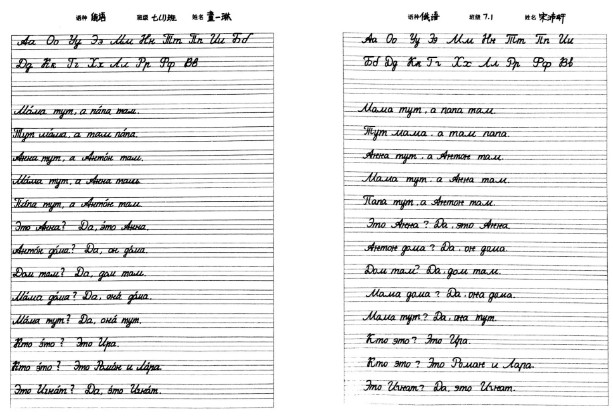 语种 俄语 班级 七(1)班 姓名 董一琳
Аа Оо Уу Ээ Мм Нн Тт Пп Ии Бб
Дд Кк Гг Хх Лл Рр Фф Вв
Ма́ма тут, а па́па там.
Тут ма́ма, а там па́па.
Анна тут, а Анто́н там.
Ма́ма тут, а Анна там.
Па́па тут, а Анто́н там.
Это Анна? Да, э́то Анна.
Анто́н до́ма? Да, он до́ма.
Дом там? Да, дом там.
Ма́ма до́ма? Да, она́ до́ма.
Ма́ма тут? Да, она́ тут.
Кто э́то? Это Ира.
Кто э́то? Это Рома́н и Ла́ра.
Это Игна́т? Да, э́то Игна́т.
语种 俄语 班级 7.1 姓名
Аа Оо Уу Ээ Мм Нн Тт Пп Ии
Бб Дд Кк Гг Хх Лл Рр Фф Вв
Мама тут, а папа там.
Тут мама, а там папа.
Анна тут, а Антон там.
Мама тут, а Анна там.
Папа тут, а Антон там.
Это Анна? Да, это Анна.
Антон дома? Да, он дома.
Дом там? Да, дом там.
Мама дома? Да, она дома.
Мама тут? Да, она тут.
Кто это? Это Ира.
Кто это? Это Роман и Лара.
Это Игнат? Да, это Игнат.